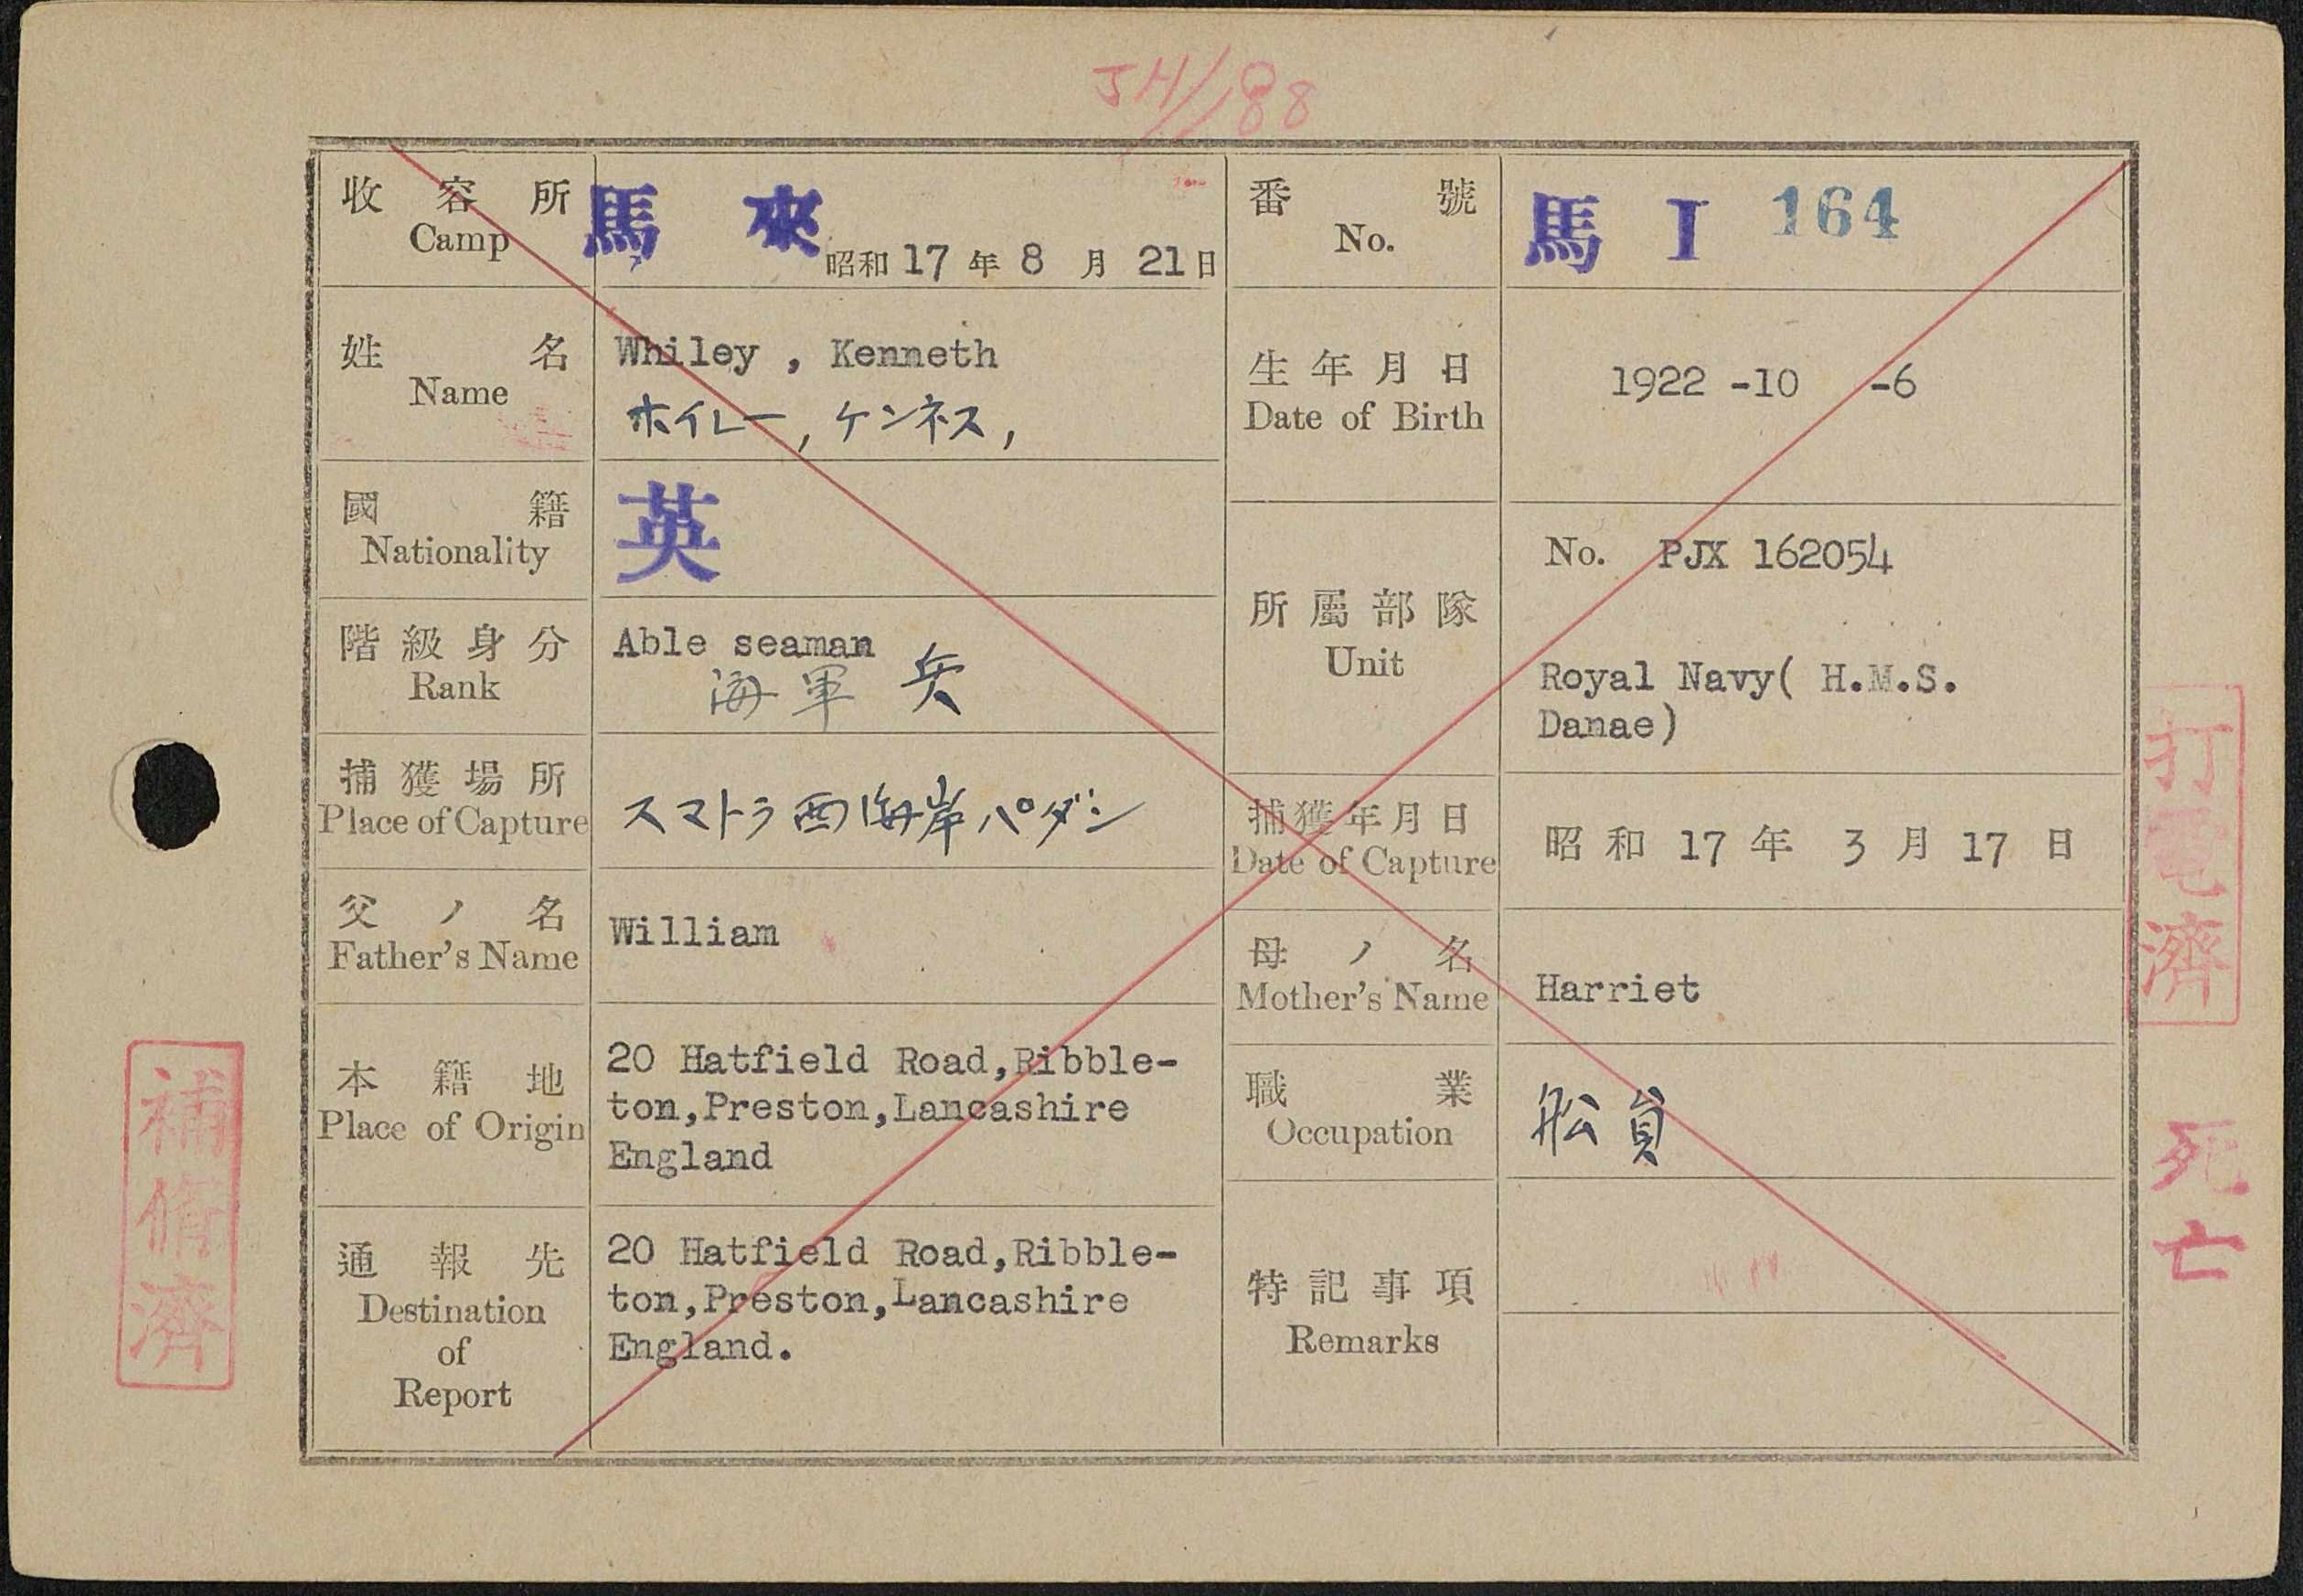 JH/188
收容所
Camp
馬來
昭和17年8月21日
番號
No.
馬 I 164
姓名
Name
Whiley , Kenneth
ホイレー, ケンネス,
生年月日
Date of Birth
1922 -10 -6
國籍
Nationality
英
階級身分
Rank
Able seaman
海軍兵
所屬部隊
Unit
No. PJX 162054
Royal Navy( H.M.S.
Danae)
捕獲場所
Place of Capture
スマトラ西海岸パダン
捕獲年月日
Date of Capture
昭和17年3月17日
父ノ名
Father's Name
William
母ノ名
Mother's Name
Harriet
本籍地
Place of Origin
20 Hatfield Road,Ribble-
ton,Preston,Lancashire
England
職業
Occupation
船員
通報先
Destination
of
Report
20 Hatfield Road,Ribble-
ton,Preston,Lancashire
England.
特記事項
Remarks
補脩濟
打電濟
死亡